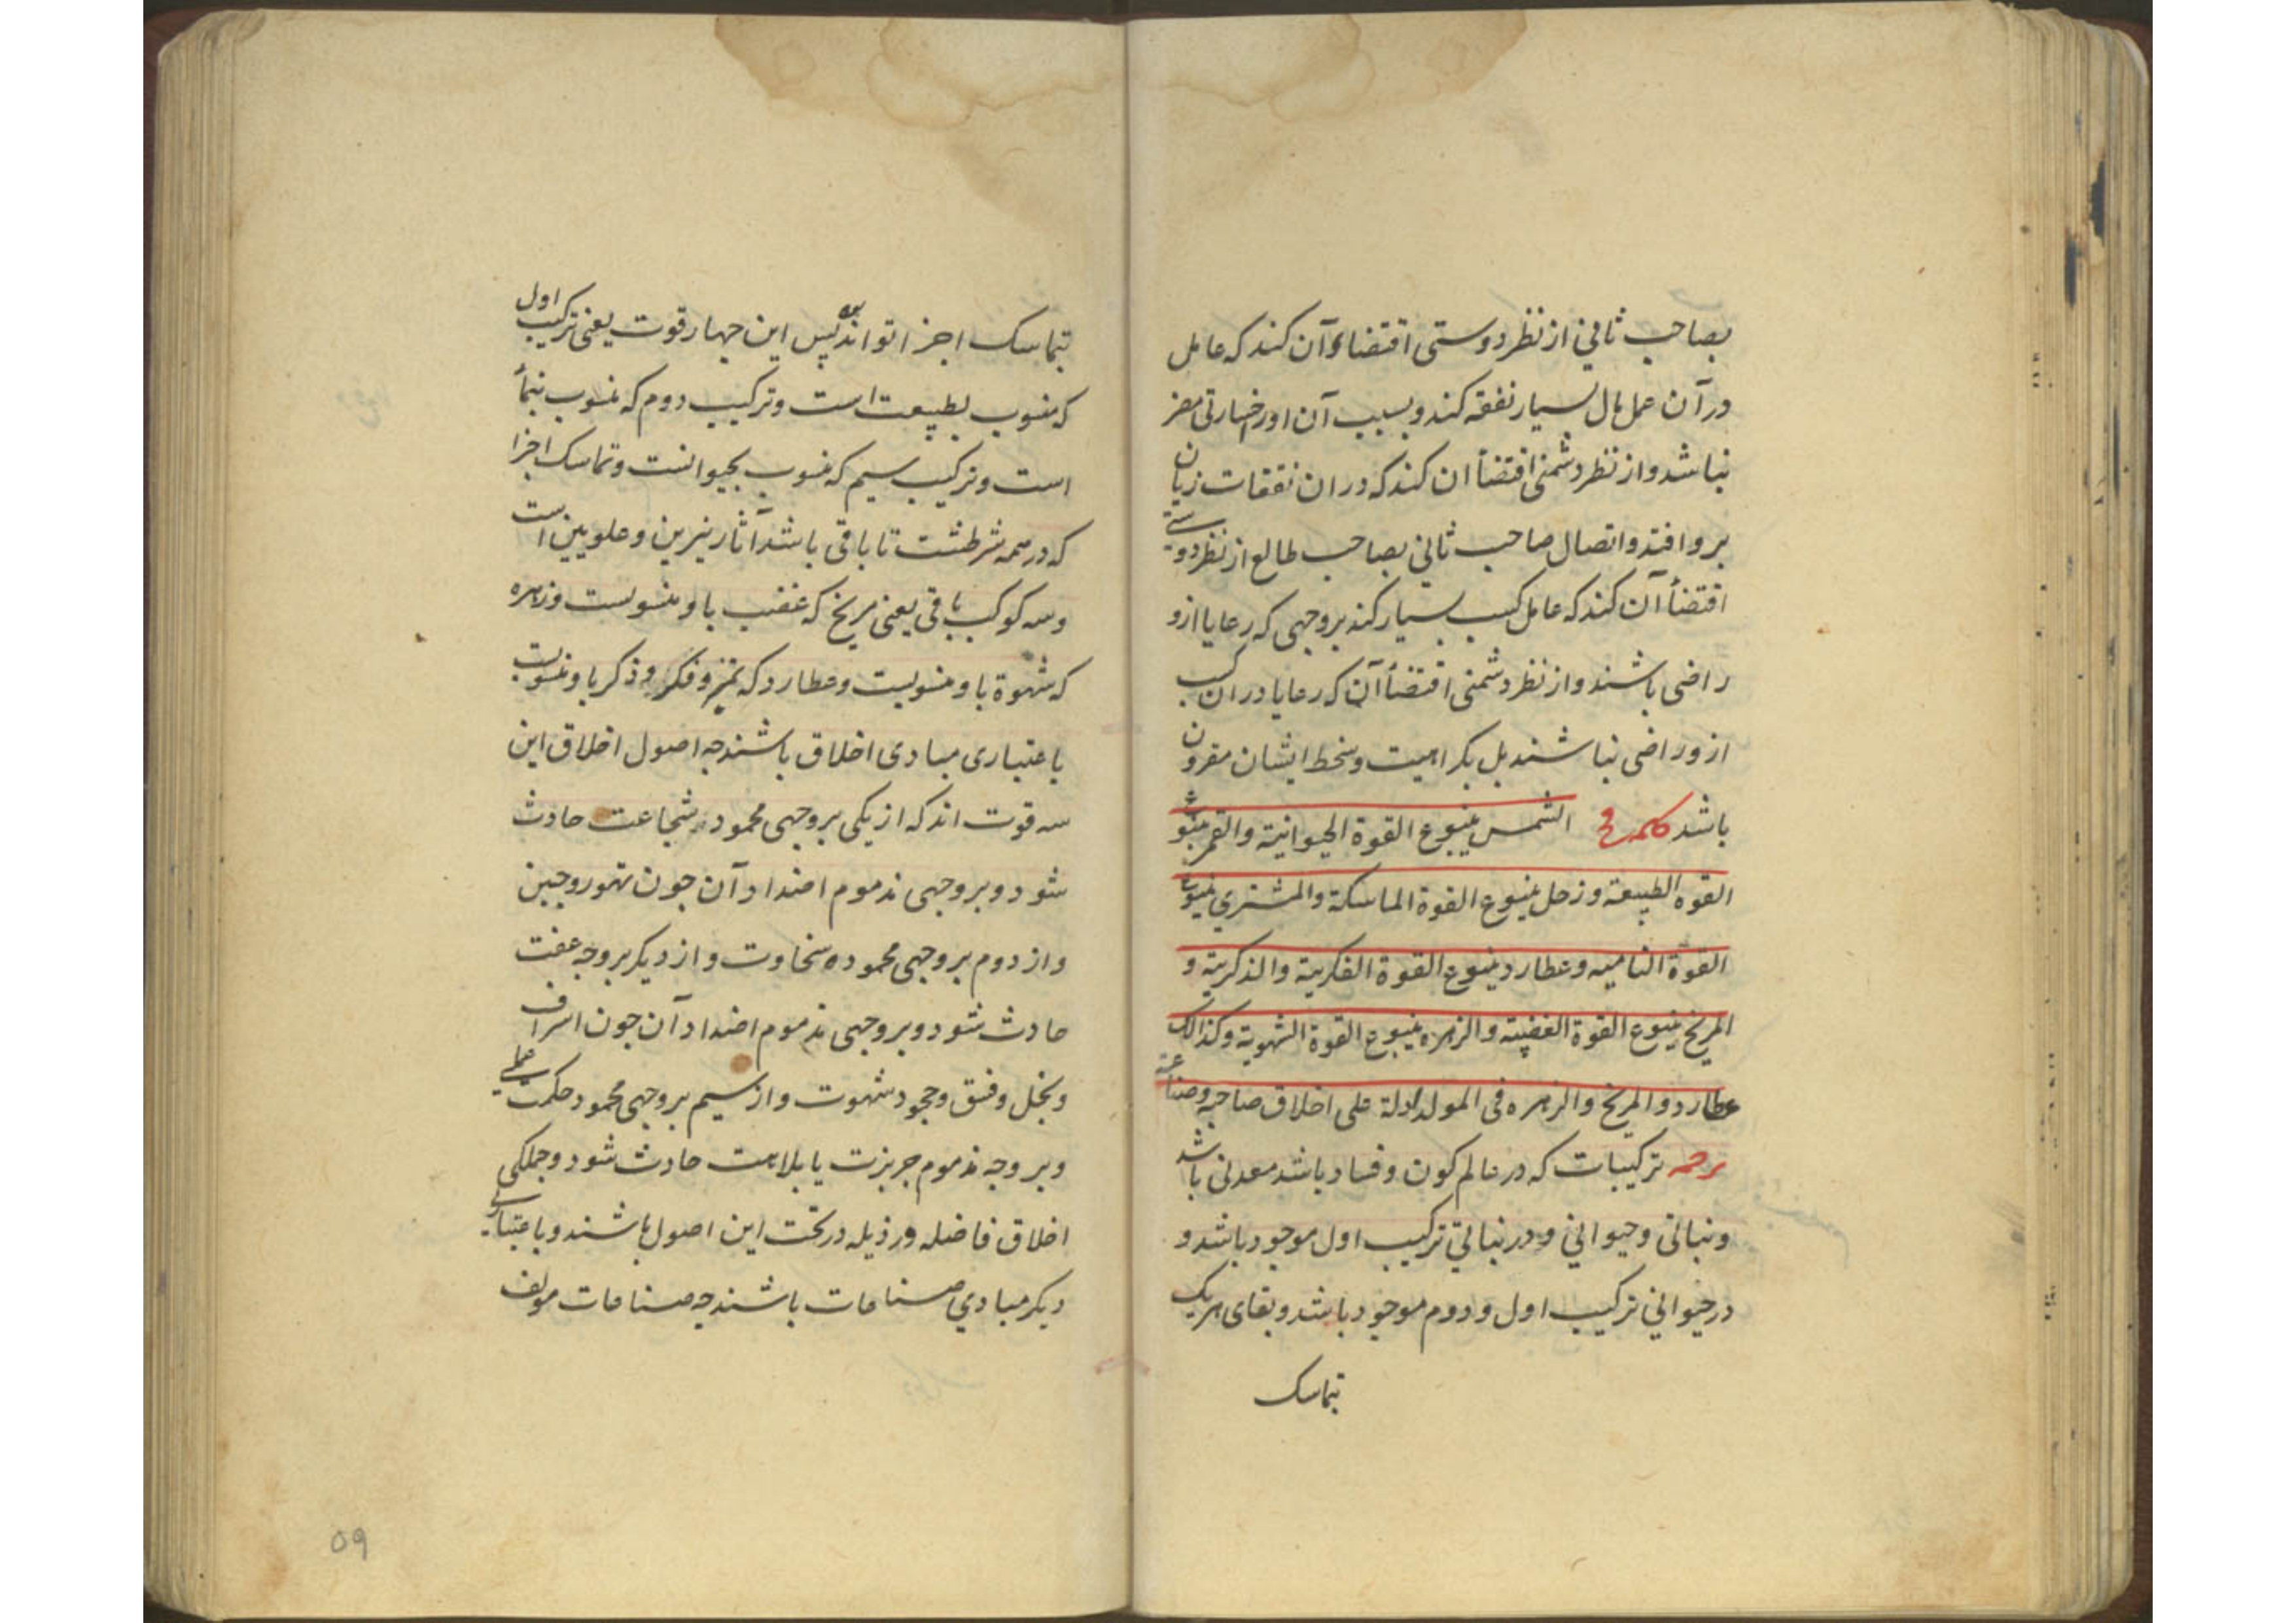 بصاحب ثانی از نظر دوستی اقتضاء آن کند که عامل
در آن عمل مال بسیار نفقه کند و بسبب آن او را خسارتی مضر
نباشد و از نظر دشمنی اقتضأ ان کند که در ان نفقات زیان
برو افتد و اتصال صاحب ثانی بصاحب طالع از نظر دوستی
اقتضأ آن کند که عامل کسب بسیار کند بر وجهی که رعایا ازو
راضی باشند و از نظر دشمنی اقتضأ آن که رعایا در ان کسب
ازو راضی نباشند بل بکراهیت و سخط ایشان مقرون
باشد کلمه الشمس ینبوع القوة الحیوانیة والقمر ینبوع
القوه الطبیعة و زحل ینبوع القوة الماسکة والمشتری ینبوع
القوة النامیه و عطارد ینبوع القوة الفکریة والذکریة و
المریخ ینبوع القوة الغضبیة والزهره ینبوع القوة الشهویة وکذالک
عطارد والمریخ والزهره فی المولد ادلة علی اخلاق صاحبه وصناعته
ترجمه ترکیبات که در عالم کون و فساد باشد معدنی باشد
و نباتی و حیوانی و در نباتی ترکیب اول موجود باشد و
در حیوانی ترکیب اول و دوم موجود باشد و بقای هر یک
تماسک
بتماسک اجزا تواند بود پس این چهار قوت یعنی ترکیب اول
که منسوب بطبیعت است و ترکیب دوم که منسوب بنمأ
است و ترکیب سیم که منسوب بحیوانست و تماسک اجزا
که در همه شرطست تا باقی باشد آثار نیرین و علویین است
و سه کوکب باقی یعنی مریخ که غضب باو منسوبست و زهره
که شهوة باو منسوبست و عطارد که تمیز و فکر و ذکر باو منسوبست
باعتباری مبادی اخلاق باشند جه اصول اخلاق این
سه قوت اند که از یکی بر وجهی محمود شجاعت حادث
شود و بر وجهی مذموم اضداد آن جون تهور و جبن
و از دوم بر وجهی محموده سخاوت و از دیکر بر وجه عفت
حادث شود و بر وجهی مذموم اضداد آن جون اسراف
و بخل و فسق و جمود شهوت و از سیم بر وجهی محمود حکمت عملی
و بر وجه مذموم جربزت یا بلاهت حادث شود و جملکی
اخلاق فاضله و رذیله در تحت این اصول باشند و باعتباری
دیکر مبادی صناعات باشند جه صناعات مولف
۵۹